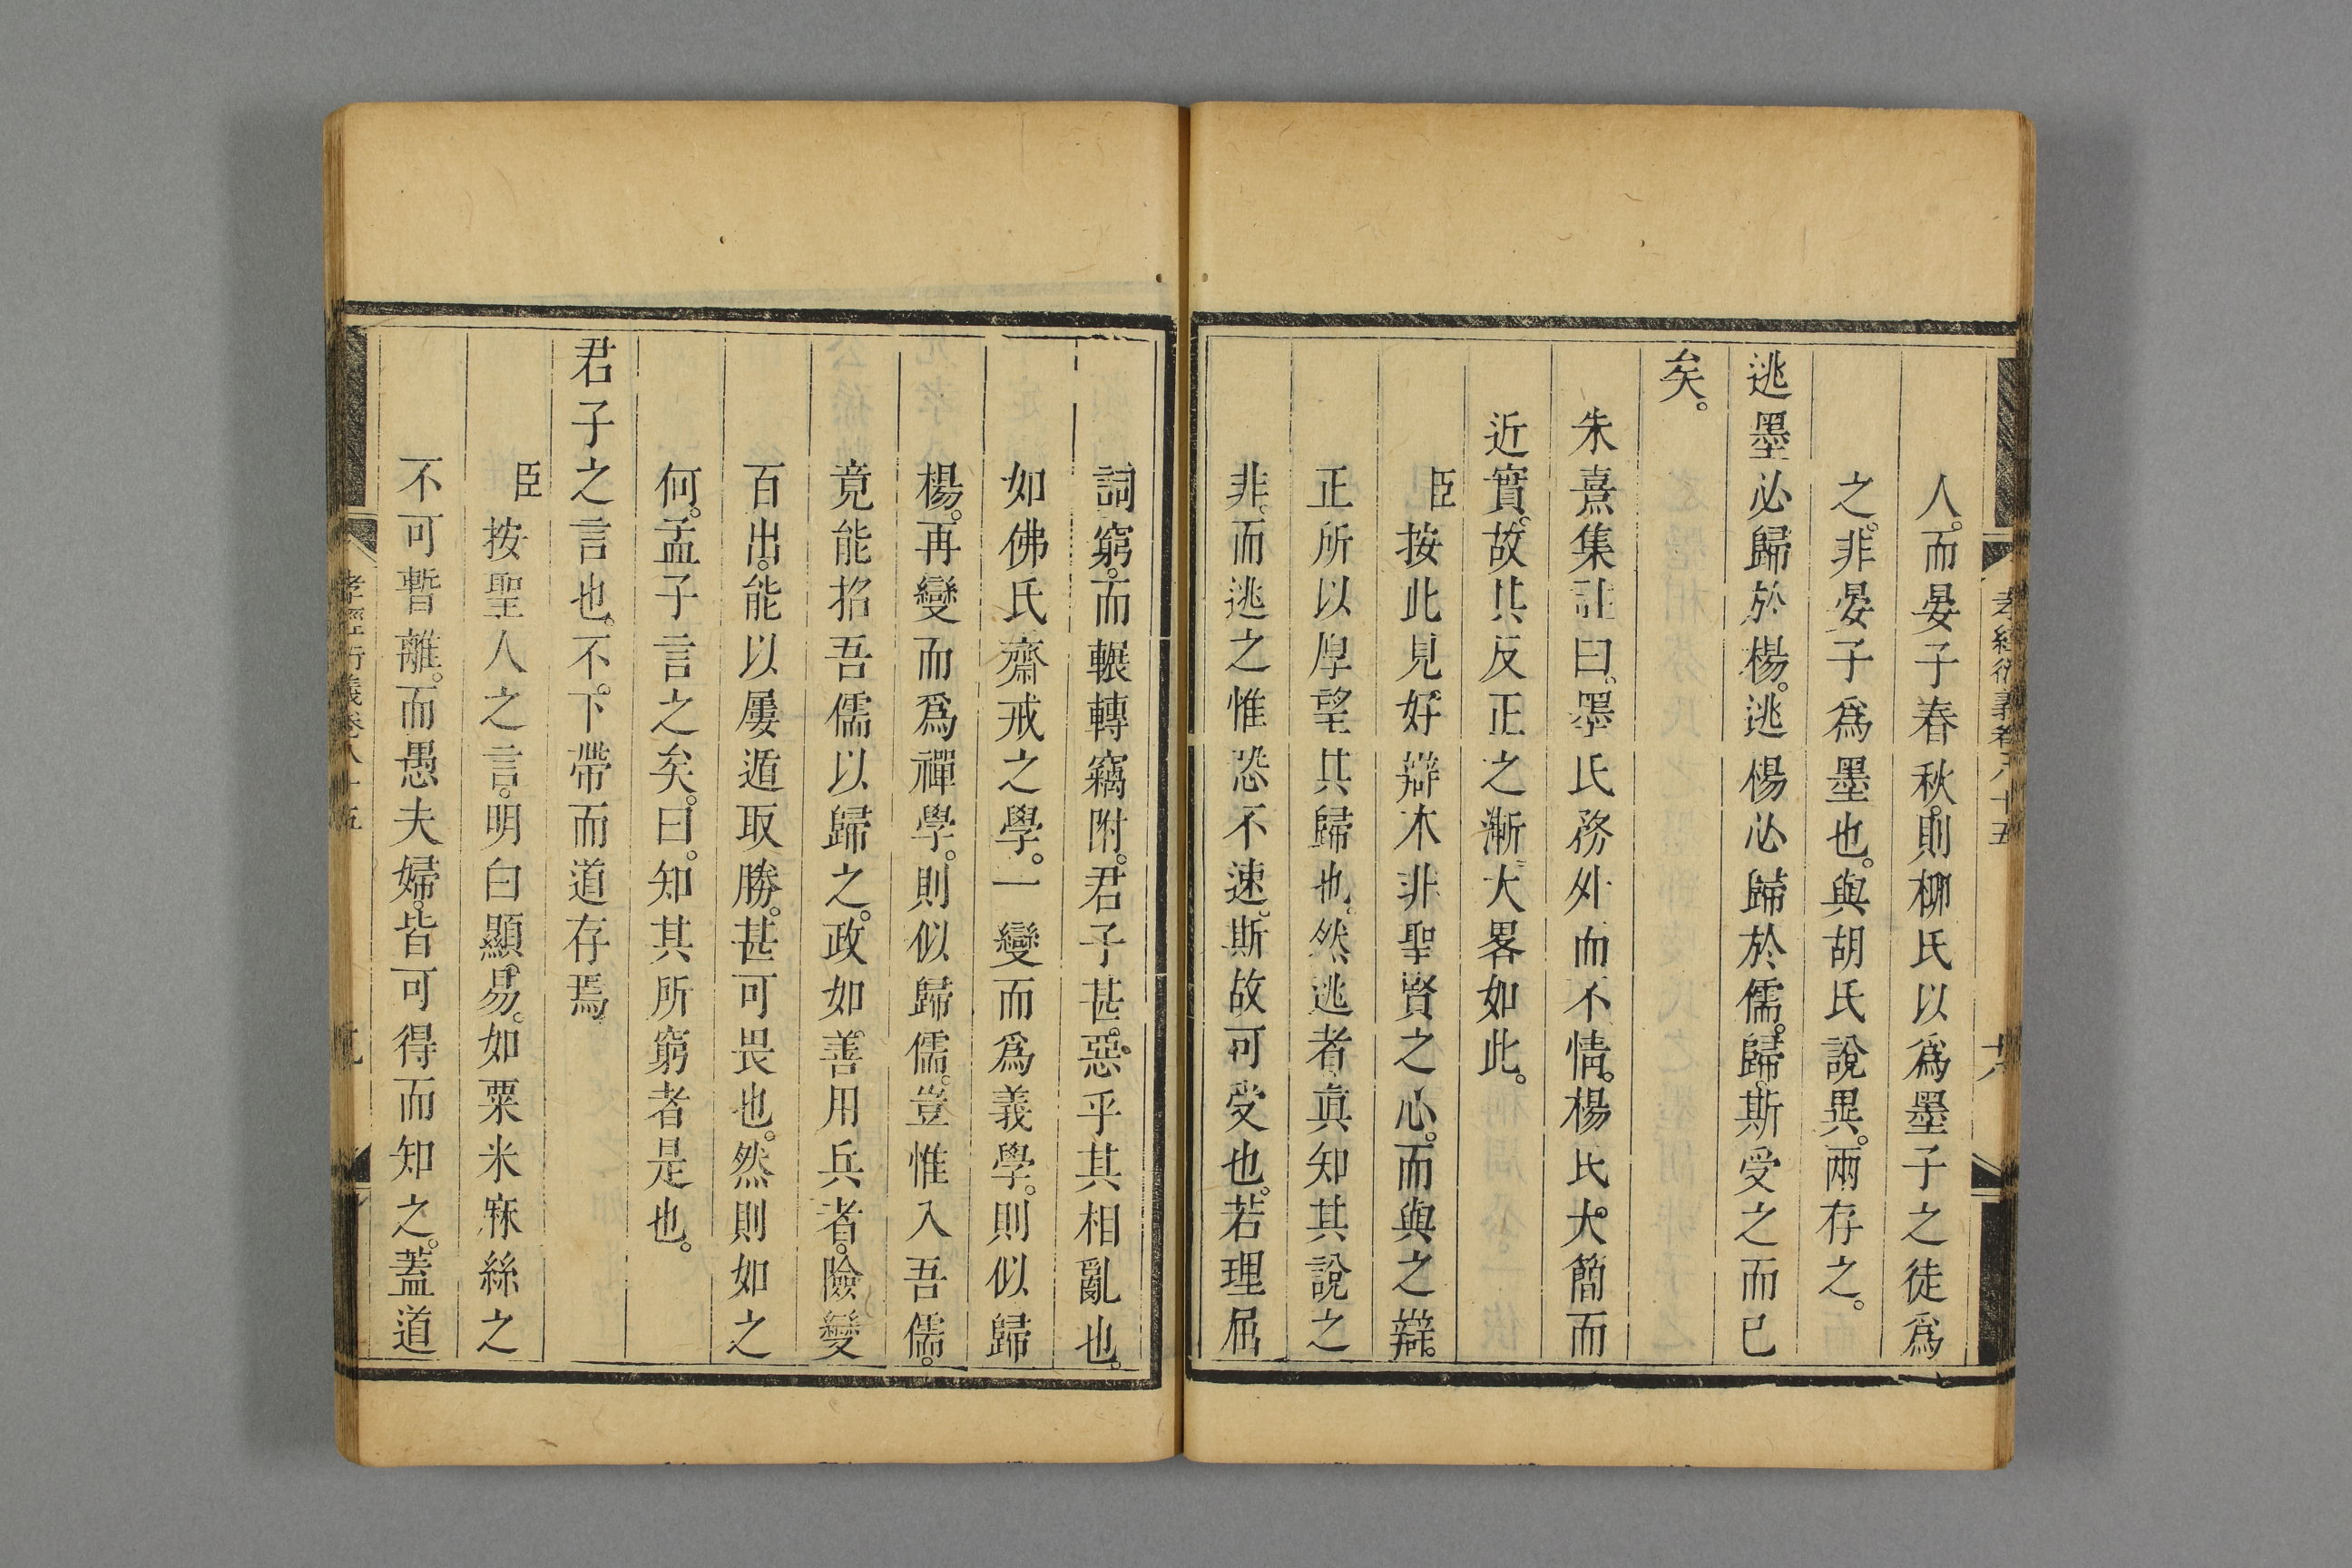 孝經衍義卷八十五
十八
人。而晏子春秋。則柳氏以爲墨子之徒爲
之。非晏子爲墨也。與胡氏說異。兩存之。
逃墨必歸於楊。逃楊必歸於儒。歸。斯受之而已
矣。
朱熹集註曰。墨氏務外而不情。楊氏太簡而
近實。故其反正之漸。大畧如此。
臣按此見好辯本非聖賢之心。而與之辯。
正所以厚望其歸也。然逃者眞知其說之
非。而逃之惟恐不速。斯故可受也。若理屈
詞窮。而輾轉竊附。君子甚惡乎其相亂也。
如佛氏齋戒之學。一變而爲義學。則似歸
楊。再變而爲禪學。則似歸儒。豈惟入吾儒。
竟能招吾儒以歸之。政如善用兵者。險變
百出。能以屢遁取勝。甚可畏也。然則如之
何。孟子言之矣。曰。知其所窮者是也。
君子之言也。不下帶而道存焉。
臣按聖人之言。明白顯易。如粟米麻絲之
不可暫離。而愚夫婦。皆可得而知之。蓋道
孝經衍義卷八十五